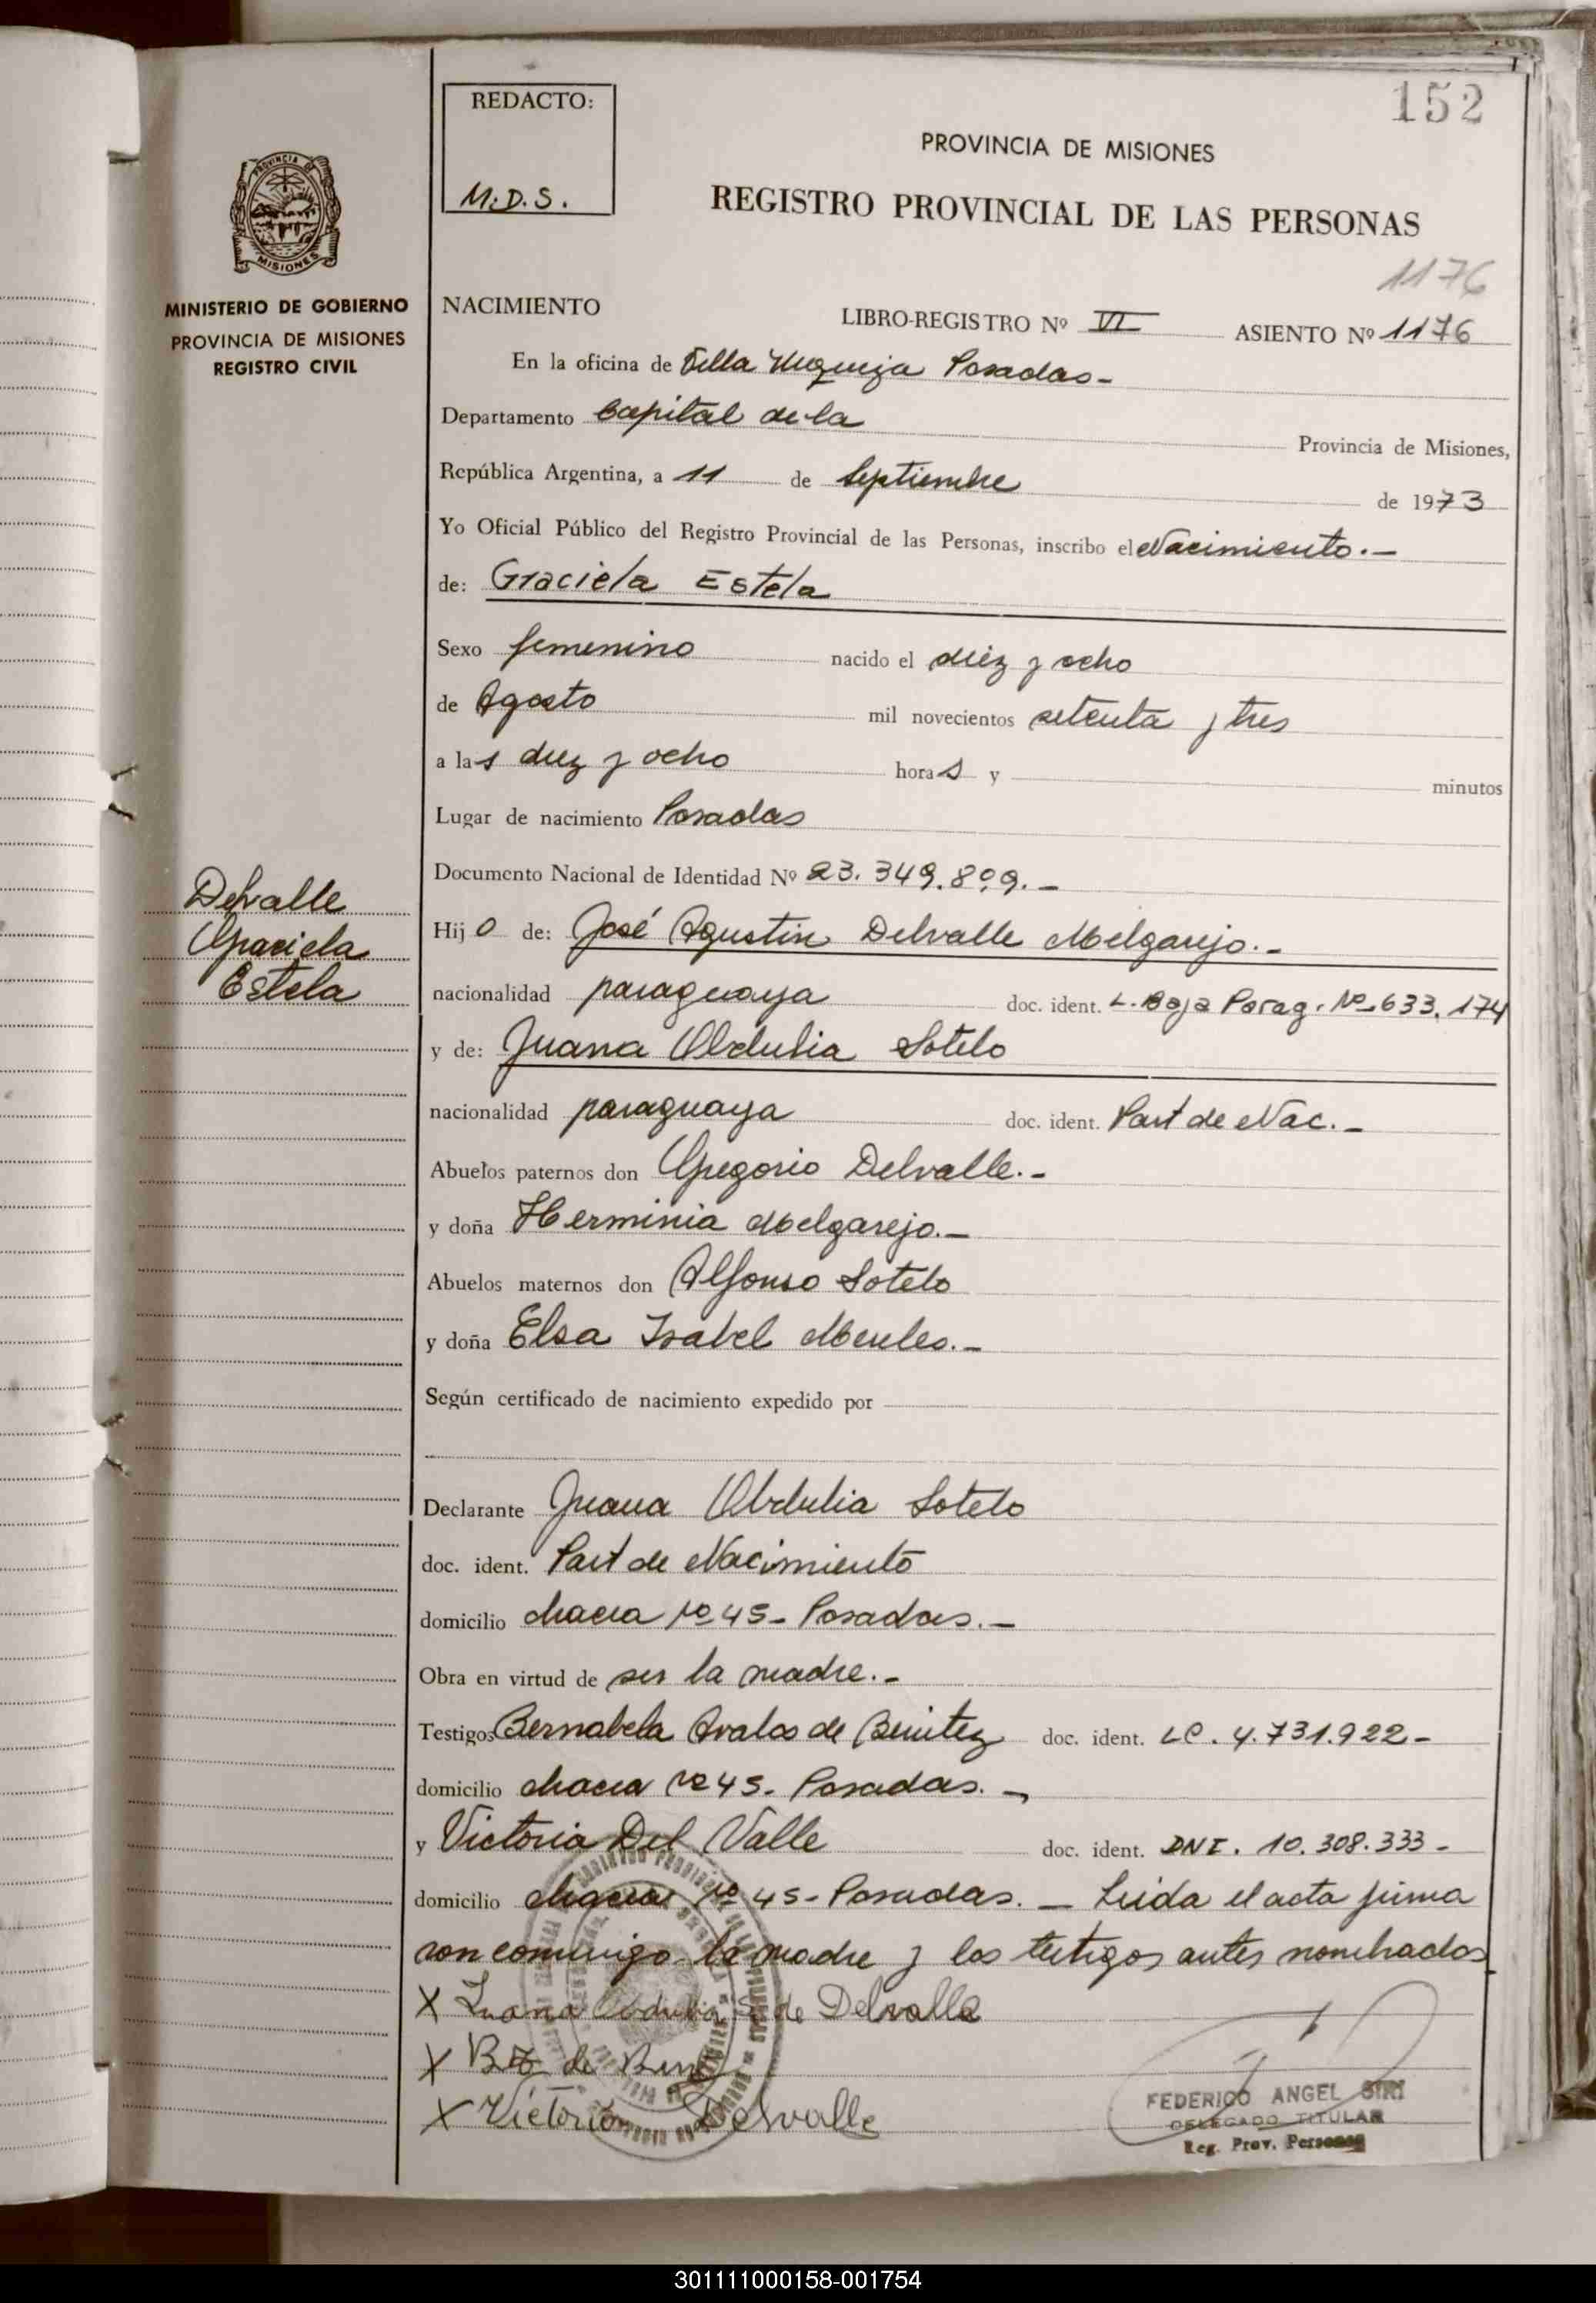 152
REDACTO:
M.D.S.
PROVINCIA DE MISIONES
REGISTRO PROVINCIAL DE LAS PERSONAS
1176
PROVINCIA DE
MISIONES
MINISTERIO DE GOBIERNO
PROVINCIA DE MISIONES
REGISTRO CIVIL
NACIMIENTO LIBRO-REGISTRO Nº VI ASIENTO Nº 1176
En la oficina de Villa Urquiza Posadas-
Departamento Capital de la Provincia de Misiones,
República Argentina, a 11 de Septiembre de 1973
Yo Oficial Público del Registro Provincial de las Personas, inscribo el Nacimiento.-
de: Graciela Estela
Sexo femenino nacido el diez y ocho
de Agosto mil novecientos setenta y tres
a las diez y ocho horas y minutos
Lugar de nacimiento Posadas
Documento Nacional de Identidad Nº 23.349.809.-
Delvalle
Graciela
Estela
Hijo de: José Agustin Delvalle Melgarejo.-
nacionalidad paraguaya doc. ident. L. Baja Parag. Nº 633.174
y de: Juana Obdulia Sotelo
nacionalidad paraguaya doc. ident. Part de Nac.-
Abuelos paternos don Gregorio Delvalle.-
y doña Herminia Melgarejo.-
Abuelos maternos don Alfonso Sotelo
y doña Elsa Isabel
Según certificado de nacimiento expedido por
Declarante Juana Obdulia Sotelo
doc. ident. Part de Nacimiento
domicilio chacra Nº 45- Posadas.-
Obra en virtud de ser la madre.-
Testigos Bernabela Avalos de Benitez doc. ident. LC. 4.731.922-
domicilio chacra Nº 45- Posadas.-
y Victoria Del Valle doc. ident. DNI. 10.308.333-
domicilio chacra Nº 45- Posadas.- Leida el acta firma
con comigo la madre y los testigos antes nombrados
X Juana Obdulia S. de Delvalle
X de
X Victoria Delvalle
FEDERICO ANGEL SIRI
DELEGADO TITULAR
Reg. Prov. Personas
301111000158-001754